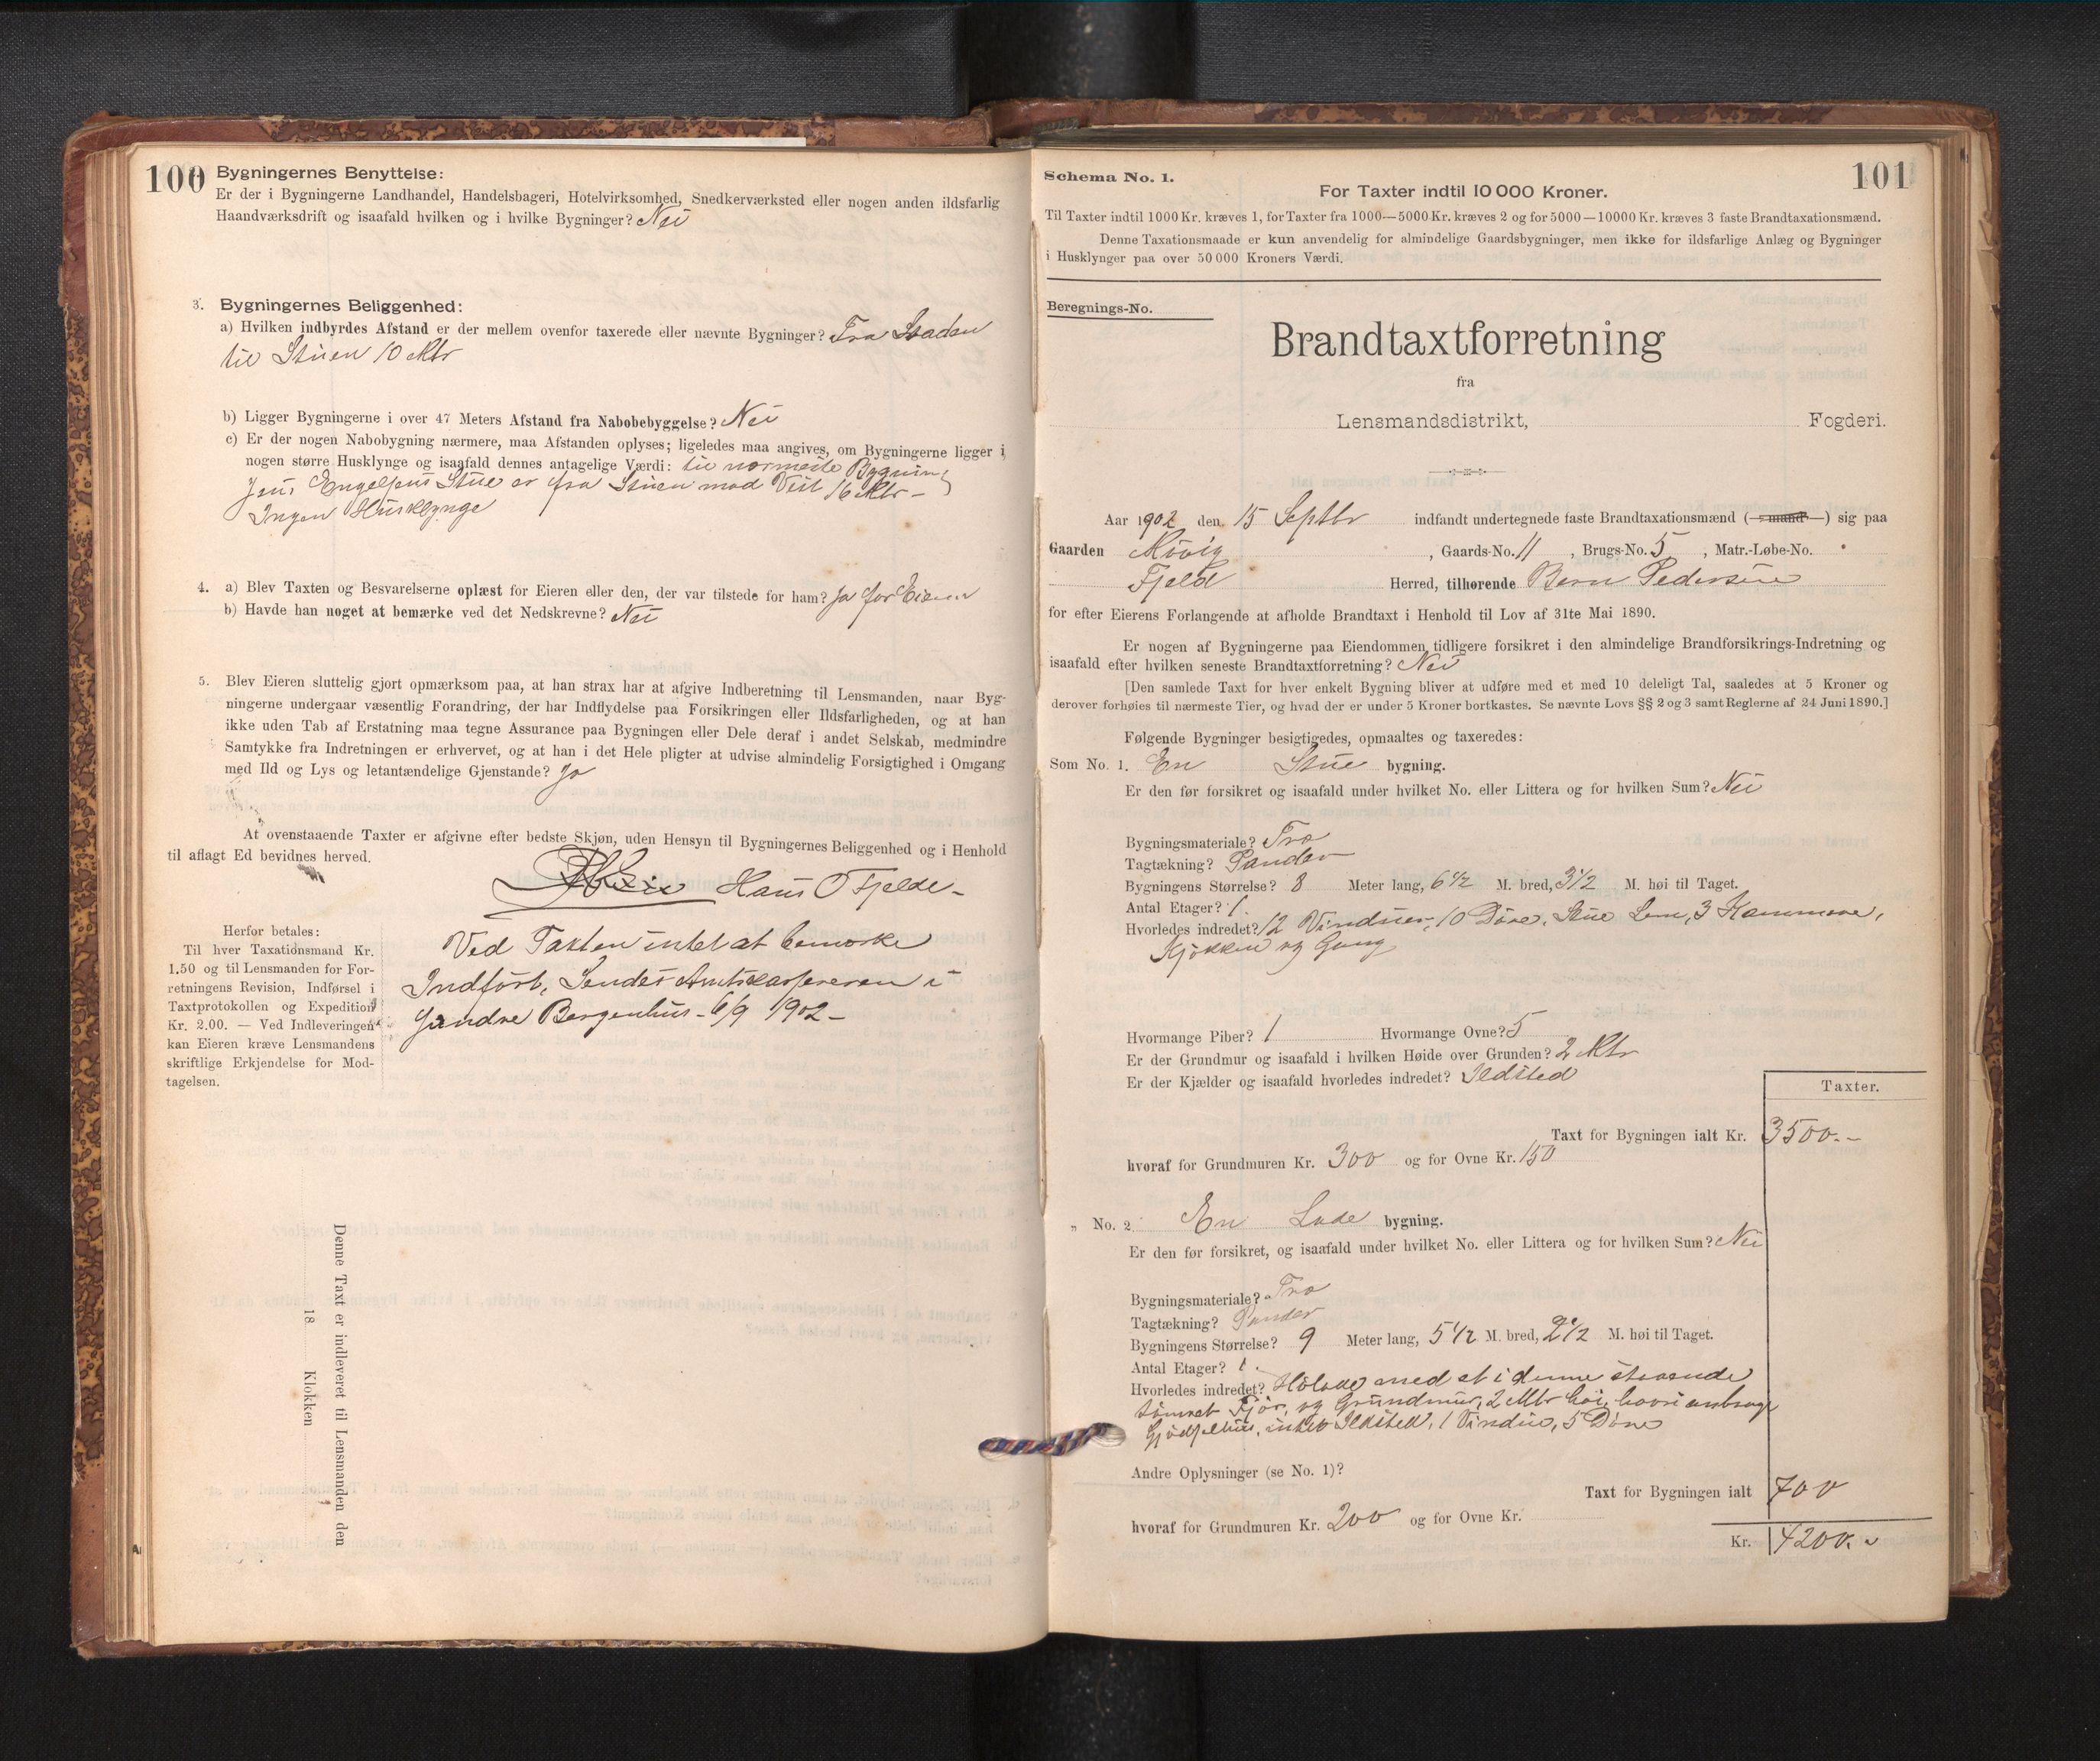 100
Bygningernes Benyttelse:
Er der i Bygningerne Landhandel, Handelsbageri, Hotelvirksomhed, Snedkerværksted eller nogen anden ildsfarlig
Haandværksdrift og isaafald hvilken og i hvilke Bygninger? Nei
3. Bygningernes Beliggenhed:
a) Hvilken indbyrdes Afstand er der mellem ovenfor taxerede eller nævnte Bygninger? Fra
til Stuen 10 Mtr
b) Ligger Bygningerne i over 47 Meters Afstand fra Nabobebyggelse? Nei
c) Er der nogen Nabobygning nærmere, maa Afstanden oplyses; ligeledes maa angives, om Bygningerne ligger i
nogen større Husklynge og isaafald dennes antagelige Værdi: til nærmeste Bygning
Jens Engelsens Stue er fra Stuen mod Vest 16 Mtr –
Ingen Husklynge
4. a) Blev Taxten og Besvarelserne oplæst for Eieren eller den, der var tilstede for ham? Ja for Eieren
b) Havde han noget at bemærke ved det Nedskrevne? Nei
5. Blev Eieren sluttelig gjort opmærksom paa, at han strax har at afgive Indberetning til Lensmanden, naar Byg-
ningerne undergaar væsentlig Forandring, der har Indflydelse paa Forsikringen eller Ildsfarligheden, og at han
ikke uden Tab af Erstatning maa tegne Assurance paa Bygningen eller Dele deraf i andet Selskab, medmindre
Samtykke fra Indretningen er erhvervet, og at han i det Hele pligter at udvise almindelig Forsigtighed i Omgang
med Ild og Lys og letantændelige Gjenstande? Ja
At ovenstaaende Taxter er afgivne efter bedste Skjøn, uden Hensyn til Bygningernes Beliggenhed og i Henhold
til aflagt Ed bevidnes herved.
Hans O Fjelde –
Herfor betales:
Til hver Taxationsmand Kr.
1.50 og til Lensmanden for For-
retningens Revision, Indførsel i
Taxtprotokollen og Expedition
Kr. 2.00. — Ved Indleveringen
kan Eieren kræve Lensmandens
skriftlige Erkjendelse for Mod-
tagelsen.
Ved Taxten intet at bemærke
Indført, Sendes Amtskassereren i
Søndre Bergenhus – 6/9 1902 –
Denne Taxt er indleveret til Lensmanden den
18 Klokken
101
Schema No. 1.
For Taxter indtil 10 000 Kroner.
Til Taxter indtil 1000 Kr. kræves 1, for Taxter fra 1000—5000 Kr. kræves 2 og for 5000—10000 Kr. kræves 3 faste Brandtaxationsmænd.
Denne Taxationsmaade er kun anvendelig for almindelige Gaardsbygninger, men ikke for ildsfarlige Anlæg og Bygninger
i Husklynger paa over 50 000 Kroners Værdi.
Beregnings-No.
Brandtaxtforretning
fra
Lensmandsdistrikt, Fogderi.
Aar 1902 den 15 Septbr indfandt undertegnede faste Brandtaxationsmænd (—mand—) sig paa
Gaarden Møvig, Gaards-No. 11, Brugs-No. 5, Matr.-Løbe-No.
Fjeld Herred, tilhørende Bern Pedersen
for efter Eierens Forlangende at afholde Brandtaxt i Henhold til Lov af 31te Mai 1890.
Er nogen af Bygningerne paa Eiendommen tidligere forsikret i den almindelige Brandforsikrings-Indretning og
isaafald efter hvilken seneste Brandtaxtforretning? Nei
[Den samlede Taxt for hver enkelt Bygning bliver at udføre med et med 10 deleligt Tal, saaledes at 5 Kroner og
derover forhøies til nærmeste Tier, og hvad der er under 5 Kroner bortkastes. Se nævnte Lovs §§ 2 og 3 samt Reglerne af 24 Juni 1890.]
Følgende Bygninger besigtigedes, opmaaltes og taxeredes:
Som No. 1. En Stue bygning.
Er den før forsikret og isaafald under hvilket No. eller Littera og for hvilken Sum? Nei
Bygningsmateriale? Træ
Tagtækning? Pander
Bygningens Størrelse? 8 Meter lang, 6 1/2 M. bred, 3 1/2 M. høi til Taget.
Antal Etager? 1.
Hvorledes indredet? 12 Vinduer, 10 Døre, Stue Lem, 3 Kammere,
Kjøkken og Gang
Hvormange Piber? 1 Hvormange Ovne? 5
Er der Grundmur og isaafald i hvilken Høide over Grunden? 2 Mtr
Er der Kjælder og isaafald hvorledes indredet? Ildsted
Taxter.
Taxt for Bygningen ialt Kr. 3500.–
hvoraf for Grundmuren Kr. 300 og for Ovne Kr. 150
„ No. 2 En Lade bygning.
Er den før forsikret, og isaafald under hvilket No. eller Littera og for hvilken Sum? Nei
Bygningsmateriale? Træ
Tagtækning? Pander
Bygningens Størrelse? 9 Meter lang, 5 1/2 M. bred, 2 1/2 M. høi til Taget.
Antal Etager? 1.
Hvorledes indredet? Hølade med et i denne staaende
tømret Fjøs, og Grundmur, 2 Mtr høi, hvori anbragt
Gjødselhus, intet Ildsted, 1 Vindue, 5 Døre
Andre Oplysninger (se No. 1)?
Taxt for Bygningen ialt 700
hvoraf for Grundmuren Kr. 200 og for Ovne Kr.
Kr. 4200.